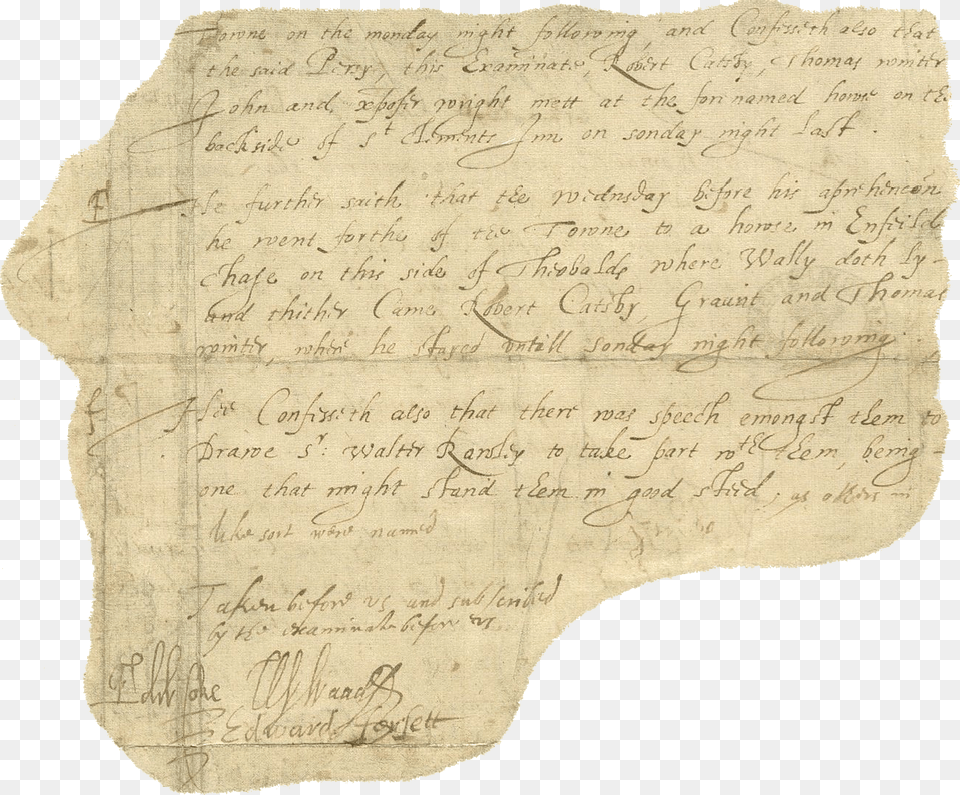 Towne on the monday night following, and Confesseth also that
the said Percy, this Examinate, Robert Catsby, Thomas winter
John and xpofer wright mett at the forenamed howse on the
backside of St Clements Inn on sonday night last.
He further saith that the wednsday before his aprehencon
he went forthe of the Towne to a howse in Enfeild
Chase on this side of Theobalds where Wally doth ly-
and thither Came Robert Catsby, Graunt and Thomas
winter, where he stayed untill sonday night following.
f Hee Confesseth also that there was speech emongst them to
Drawe Sr. Walter Rawley to take part wth them, being-
one that might stand them in good steed, as others in
like sort were named
Taken before us and subscribed
by the examinate before us
Edw Coke W Waad
Edward Forsett